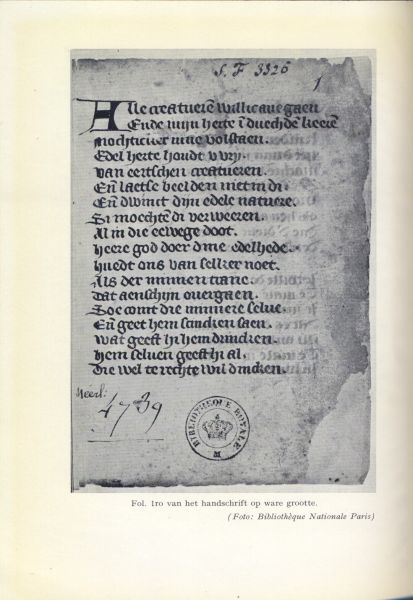 S. F 3326
1
Alle creatuerē willic aue gaen
Ende mijn herte ī duechdē keerē
mochtic
Edel herte houdt v vry.
van eertschen creatueren.
Eñ laetse beelden niet in di.
Eñ dwinct dijn edele natuere.
Si moechte di verweeren.
Al in die eewege doot.
heere god doer dine edelhede.
huedt ons van selker noet.
Als der minnen trane.
Dat aenschijn ouergaen.
Soe comt die minnere selue.
Eñ geet hem scincken saen.
wat geeft hi hem drincken.
hem seluen geeft hi al.
Die wel te rechte wil dincken.
Néerl:
4739
BIBLIOTHÈQUE ROYALE
Fol. 1ro van het handschrift op ware grootte.
(Foto: Bibliothèque Nationale Paris)